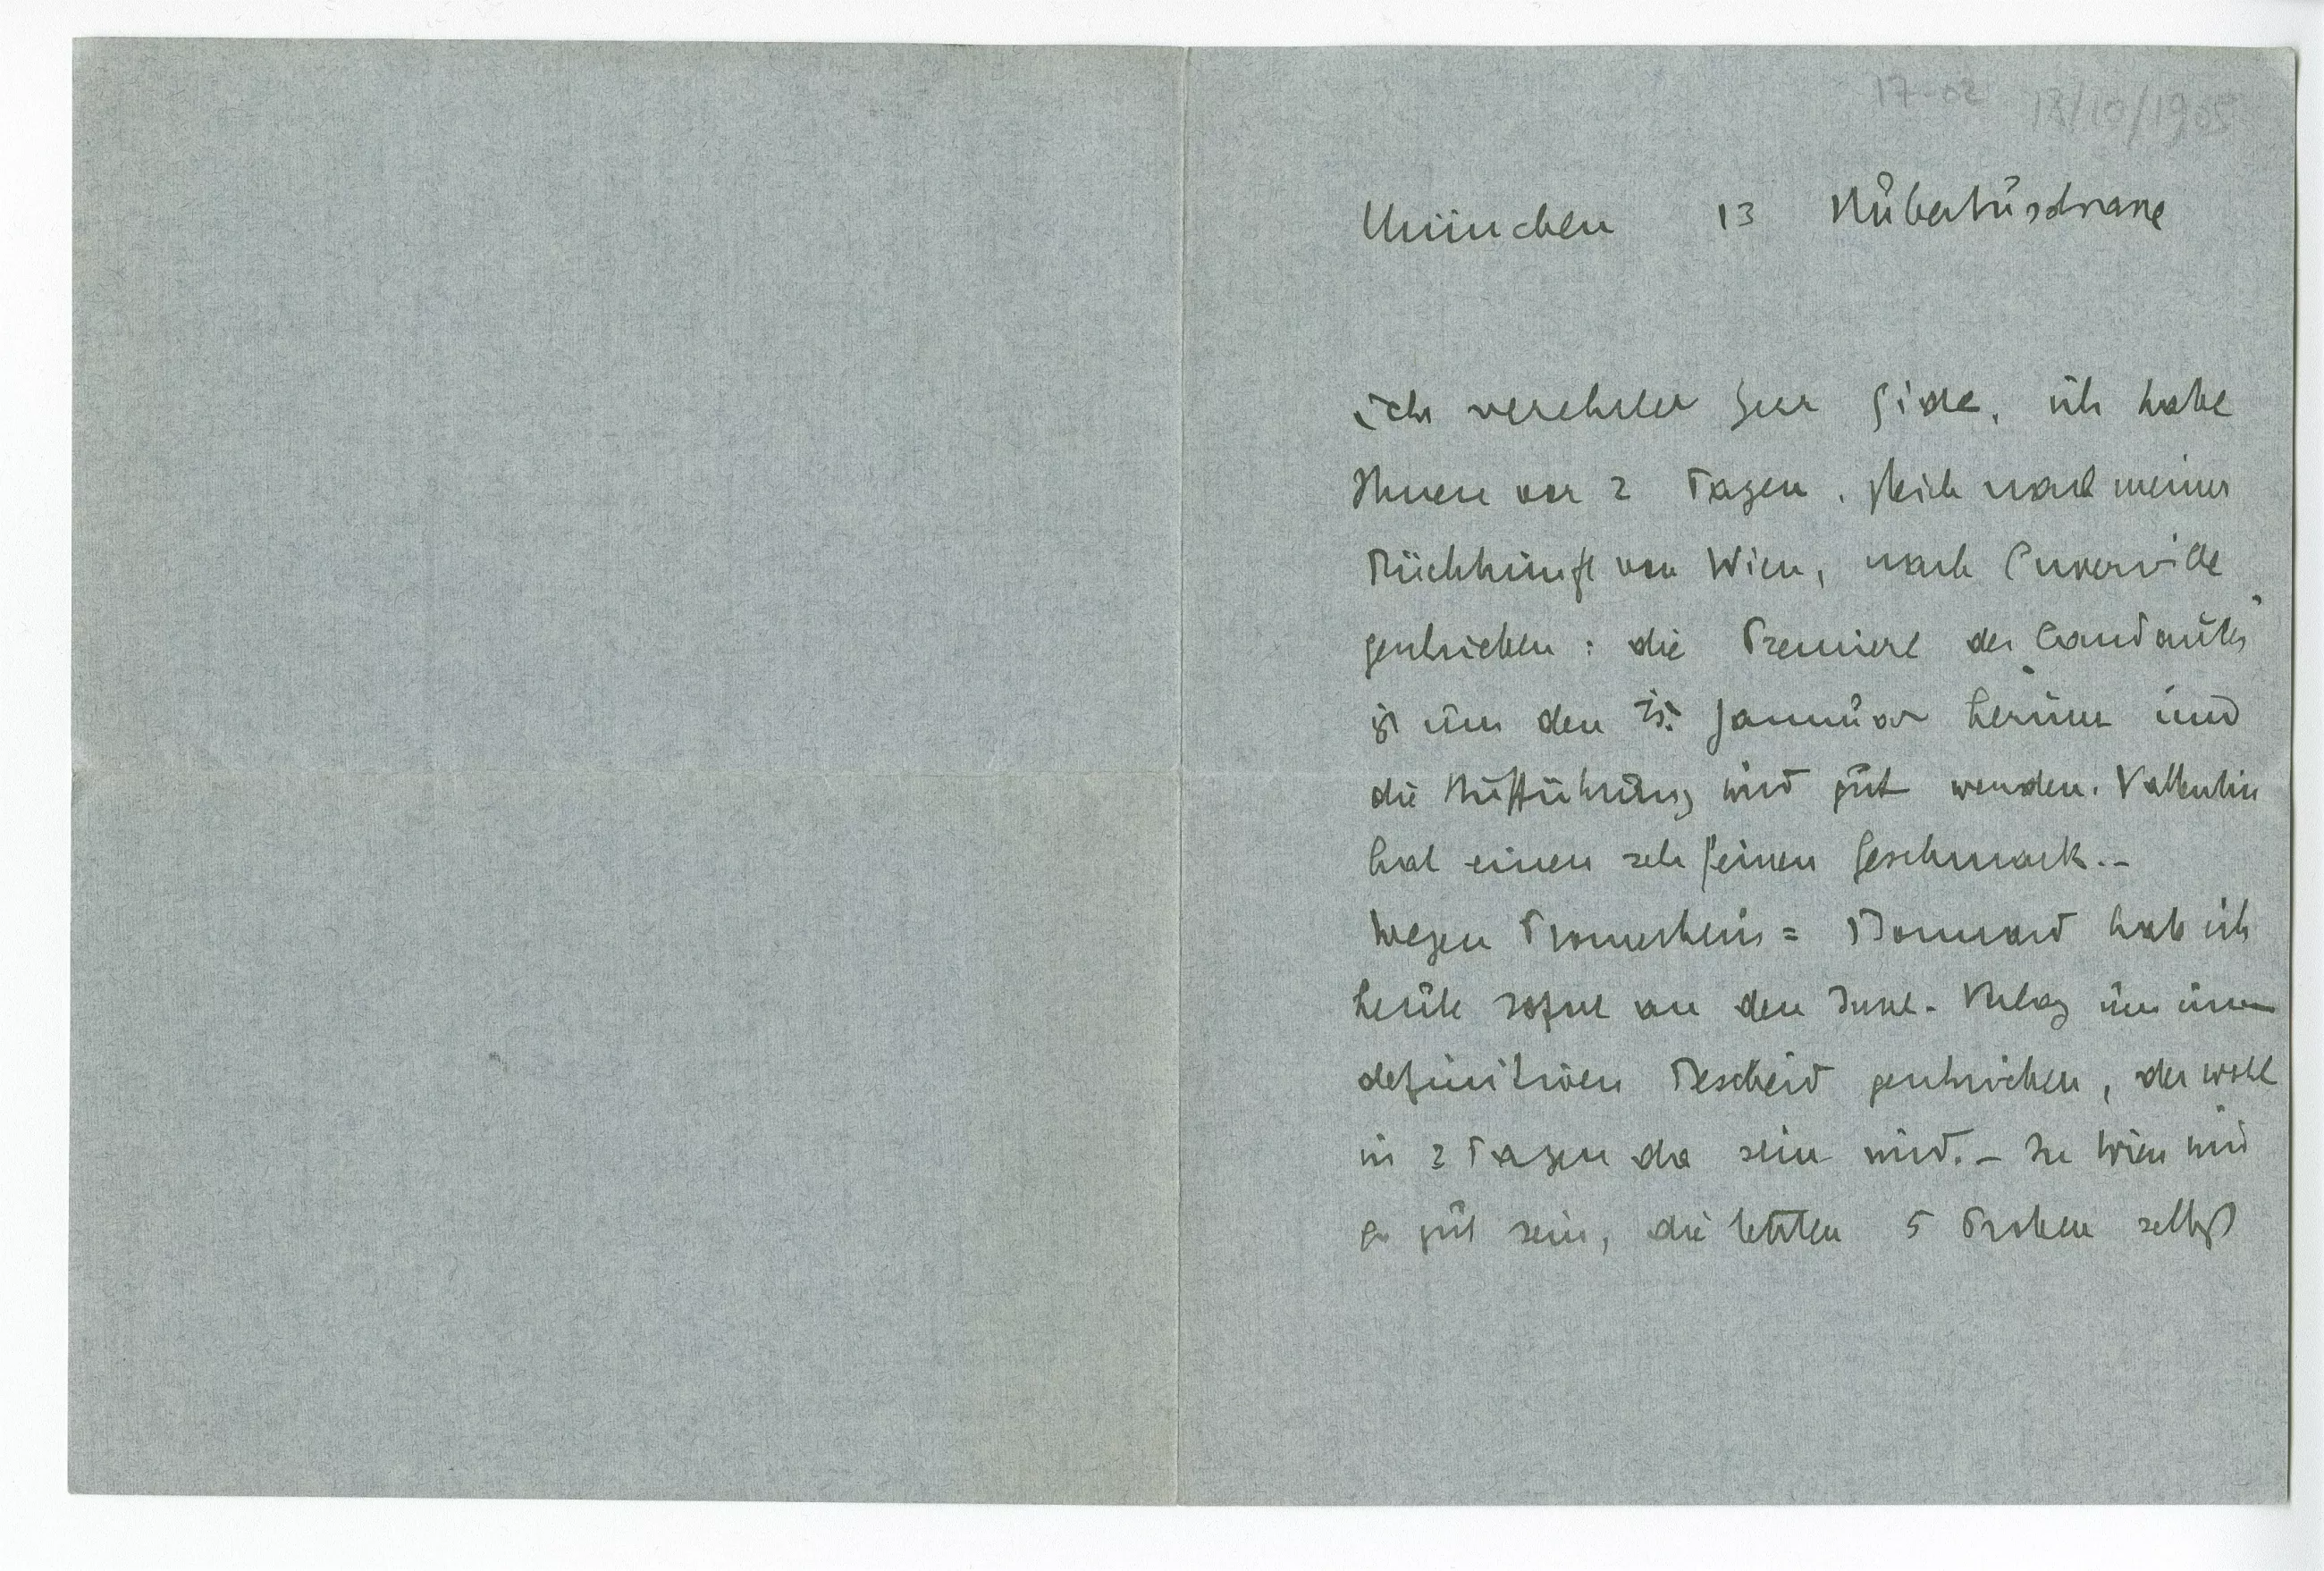 17-02 13/10/1905
München 13 Hubertusstrasse
sehr verehrter Herr Gide, ich habe
Ihnen vor 2 Tagen, gleich nach meiner
Rückkunft von Wien, nach Cuverville
geschrieben: die Premiere des „Candaules"
ist um den 15. Januar herum und
die Aufführung wird gut werden. Vallentin
hat einen sehr feinen Geschmack.-
Wegen Prometheus = Bonnard hab ich
heute sofort an den Insel-Verlag um
definitiven Bescheid geschrieben, der wohl
in 2 Tagen da sein wird.- In Wien wird
es gut sein, die letzten 5 Proben selbst